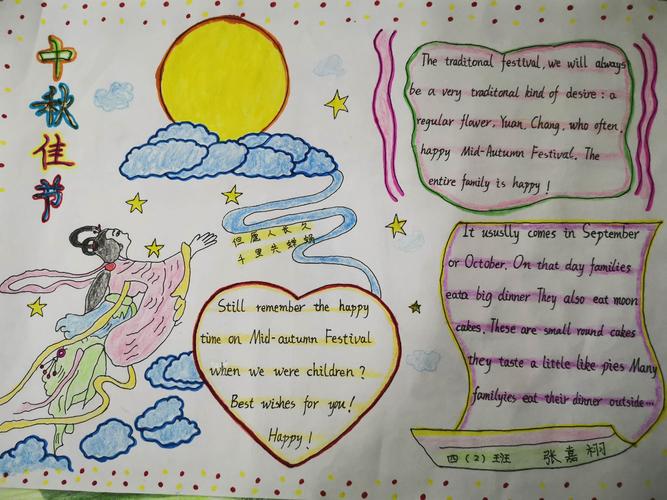 中秋佳节
The traditonal festtval, we will always
be a very traditonal kind of desire : a
regular flower. Yuan, Chang, who often,
happy Mid-Autumn Festival. The
entire family is happy !
但愿人长久
千里
Still remember the happy
time on Mid-autumn Festival
when we were children ?
Best wishes for you !
Happy !
It ususlly comes in September
or October. On that day families
eata big dinner They also eat moon
cakes. These are small round cakes
they taste a little like pies Many
familyies eat their dinner outside…
四（2）班 张嘉